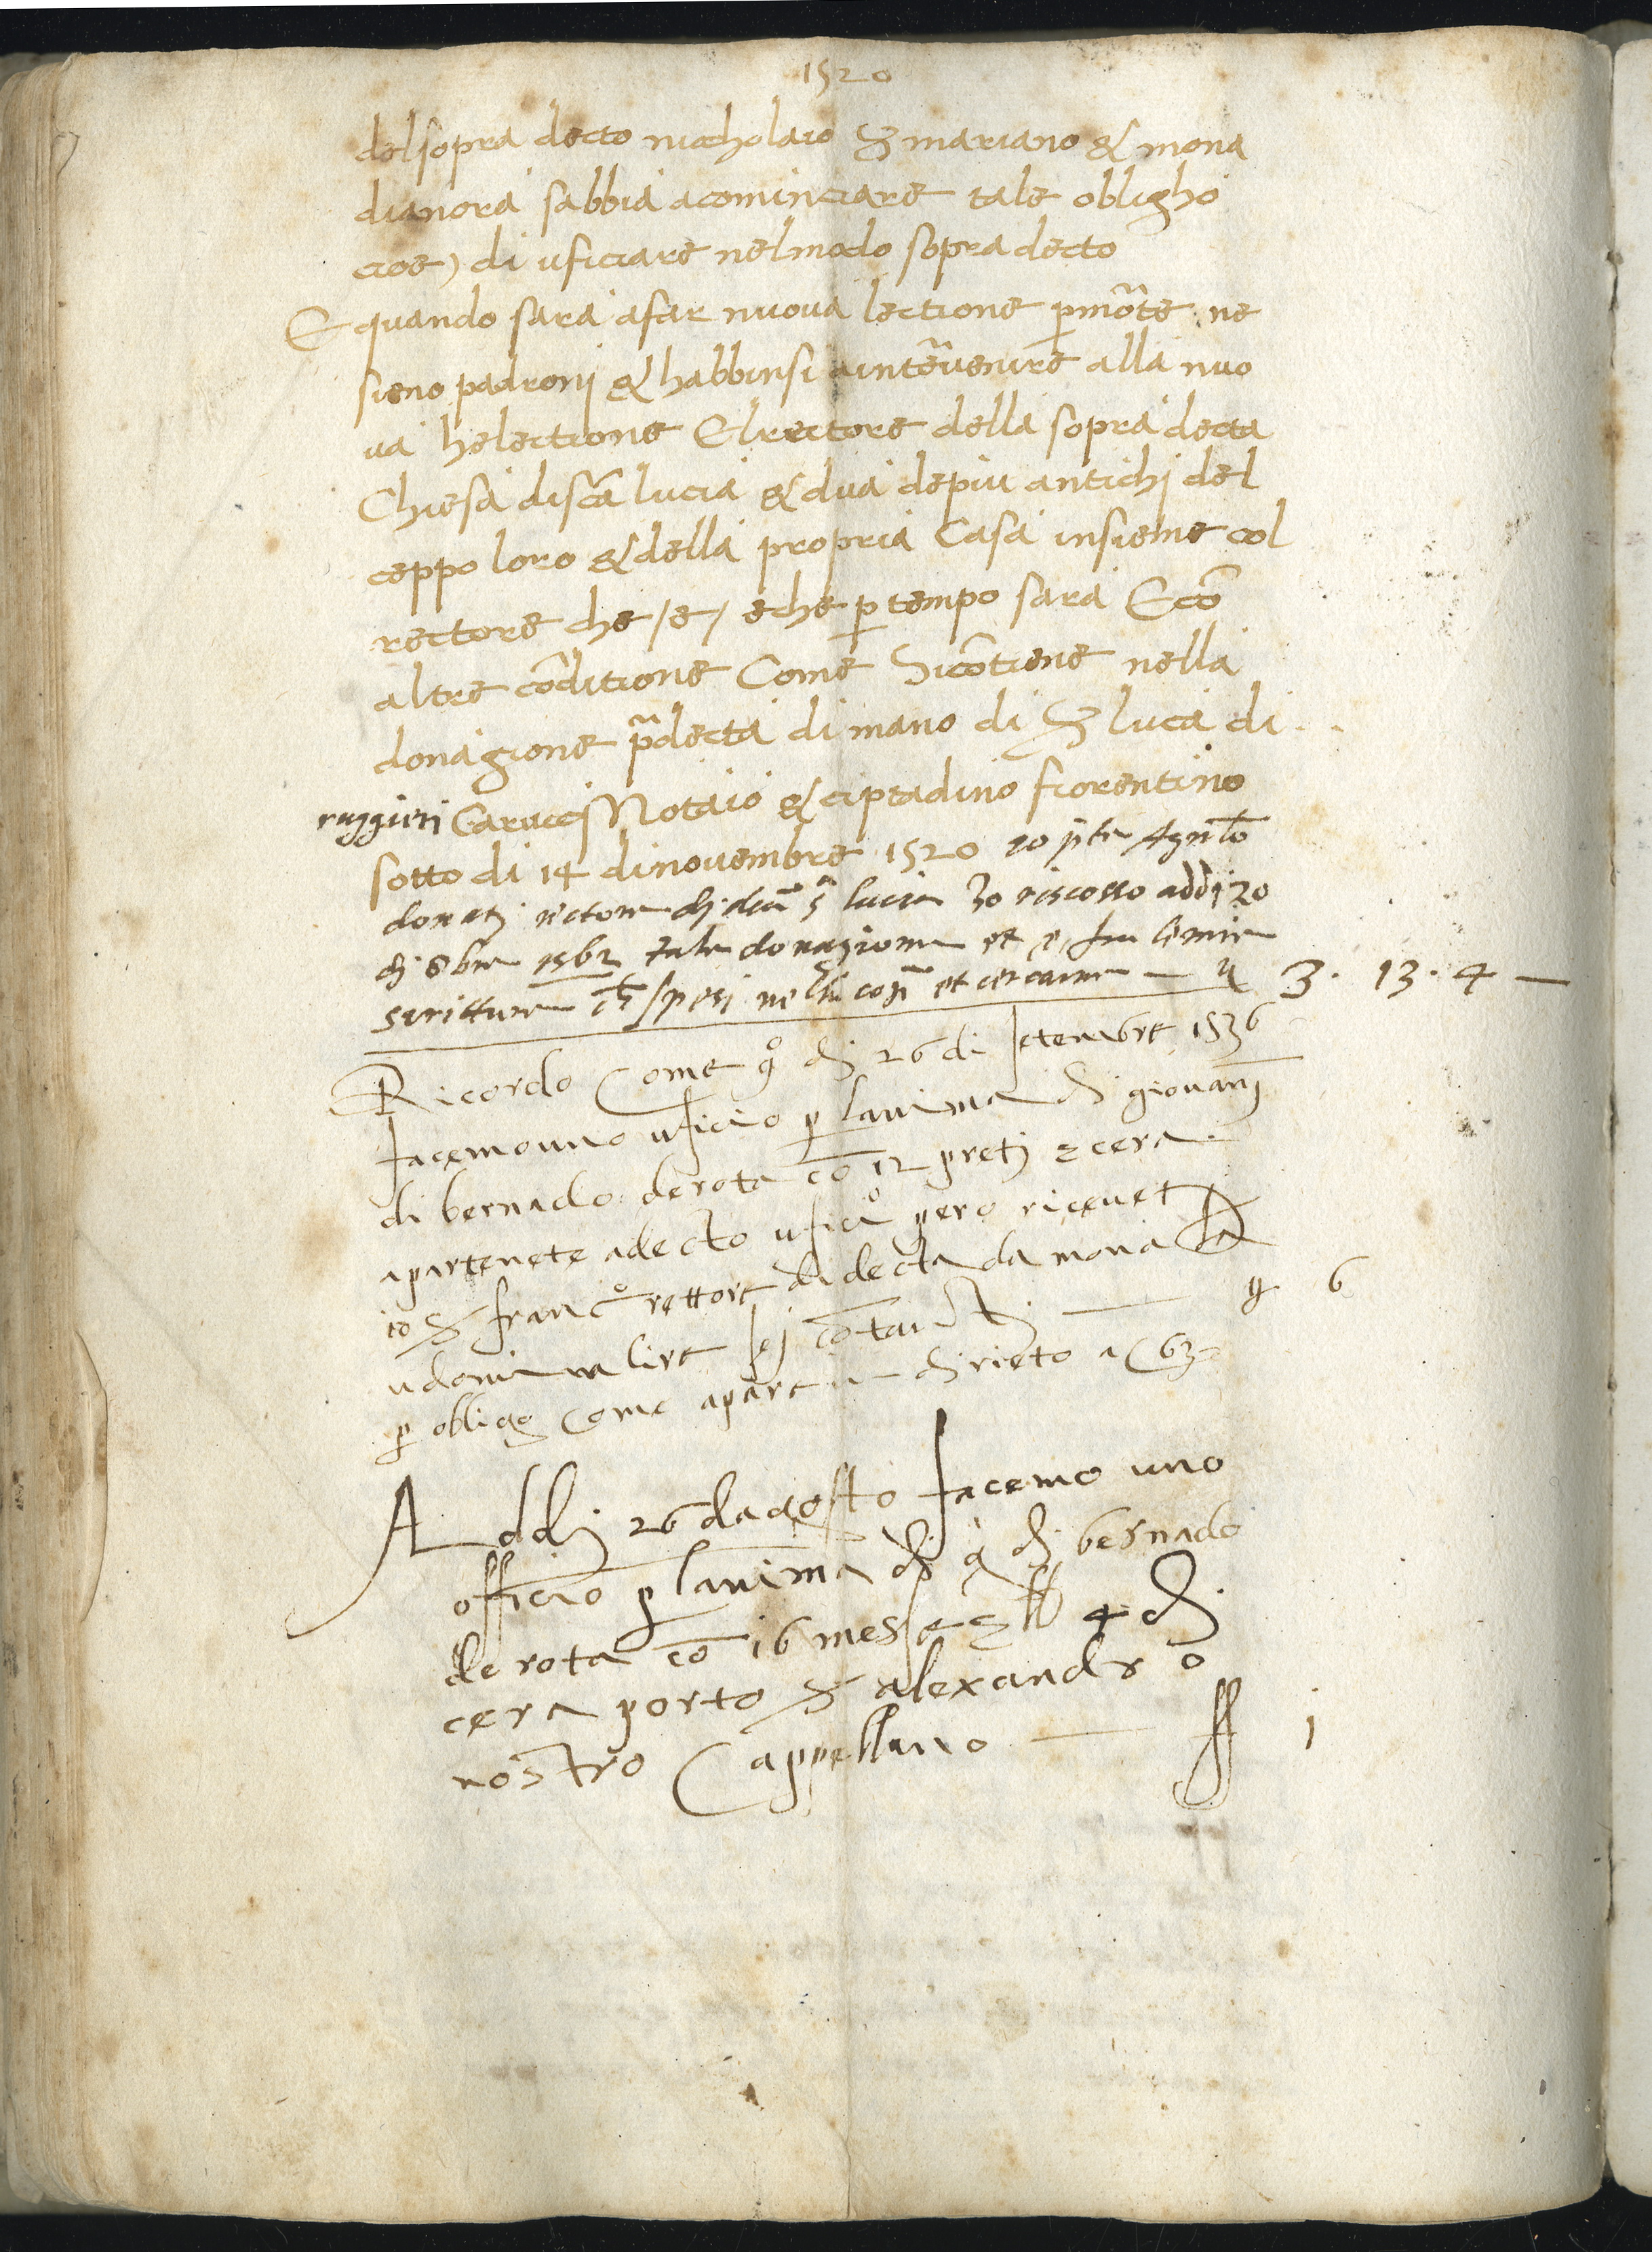 1520
delsopra decto niccholaio & mariano & mona
dianora sabbia acominciare tale oblighо
cioe) di uficiare nelmodo sopra decto
E quando sara afar nuova lectione p mõte ne
sieno padronj & habbinsi aintẽvenire alla nuo
va helectione Elrectore della sopra decta
Chiesa discã lucia & dua depiu antichj del
ceppo loro & della propria Casa insieme col
rectore che /e/ eche p tempo sara Ecõ
altre cõditione Come Sicõtiene nella
donagione p̃decta di mano di S luca di
ruggieri Caruccj Notaio & ciptadino fiorentino
sotto di 14 dinovembre 1520 io pte Agnlo
donatj rectore dj dcã s lucia ho riscosso addi 20
dj 8bre 1562 tale donagione et
scritture spesi et cercarne — 3. 13. 4 —
Ricordo Come qo dj 26 di setenbre 1536
facemo uno uficio p lanima dj giovanj
di bernado derota cõ 12 pretj e cera
apartenete adecto uficio pero ricevet
io S franco rettore di decta da mona
lire sej cõtantj — 6
p obligo Come apare in dirieto a C 63
Addj 26 dagosto facemo uno
officio p lanima dj g dj bernado
de rota cõ 16 messe e ll 4 dj
cera porto S alexandro
nostro Cappellano — ff 1